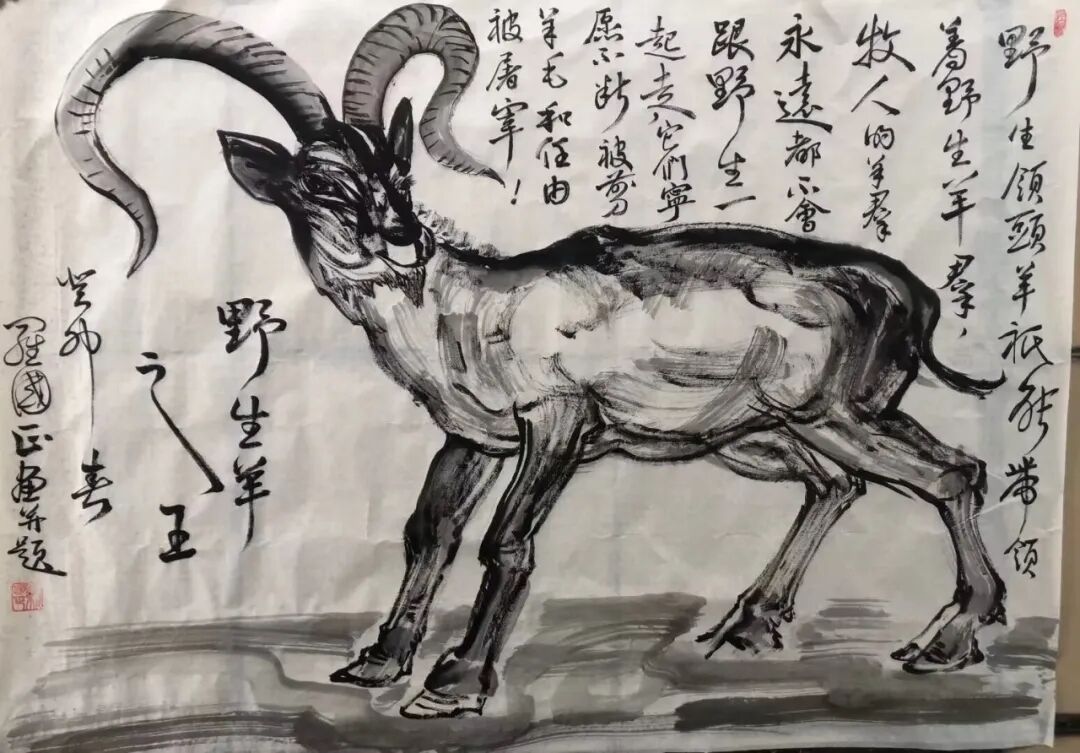 野生領頭羊祇能帶領
着野生羊羣，
牧人的羊羣
永遠都不會
跟野生一
起走，它們寧
愿不斷被剪
羊毛和任由
被屠宰！
野生羊
之王
癸卯春
羅國正畫并題